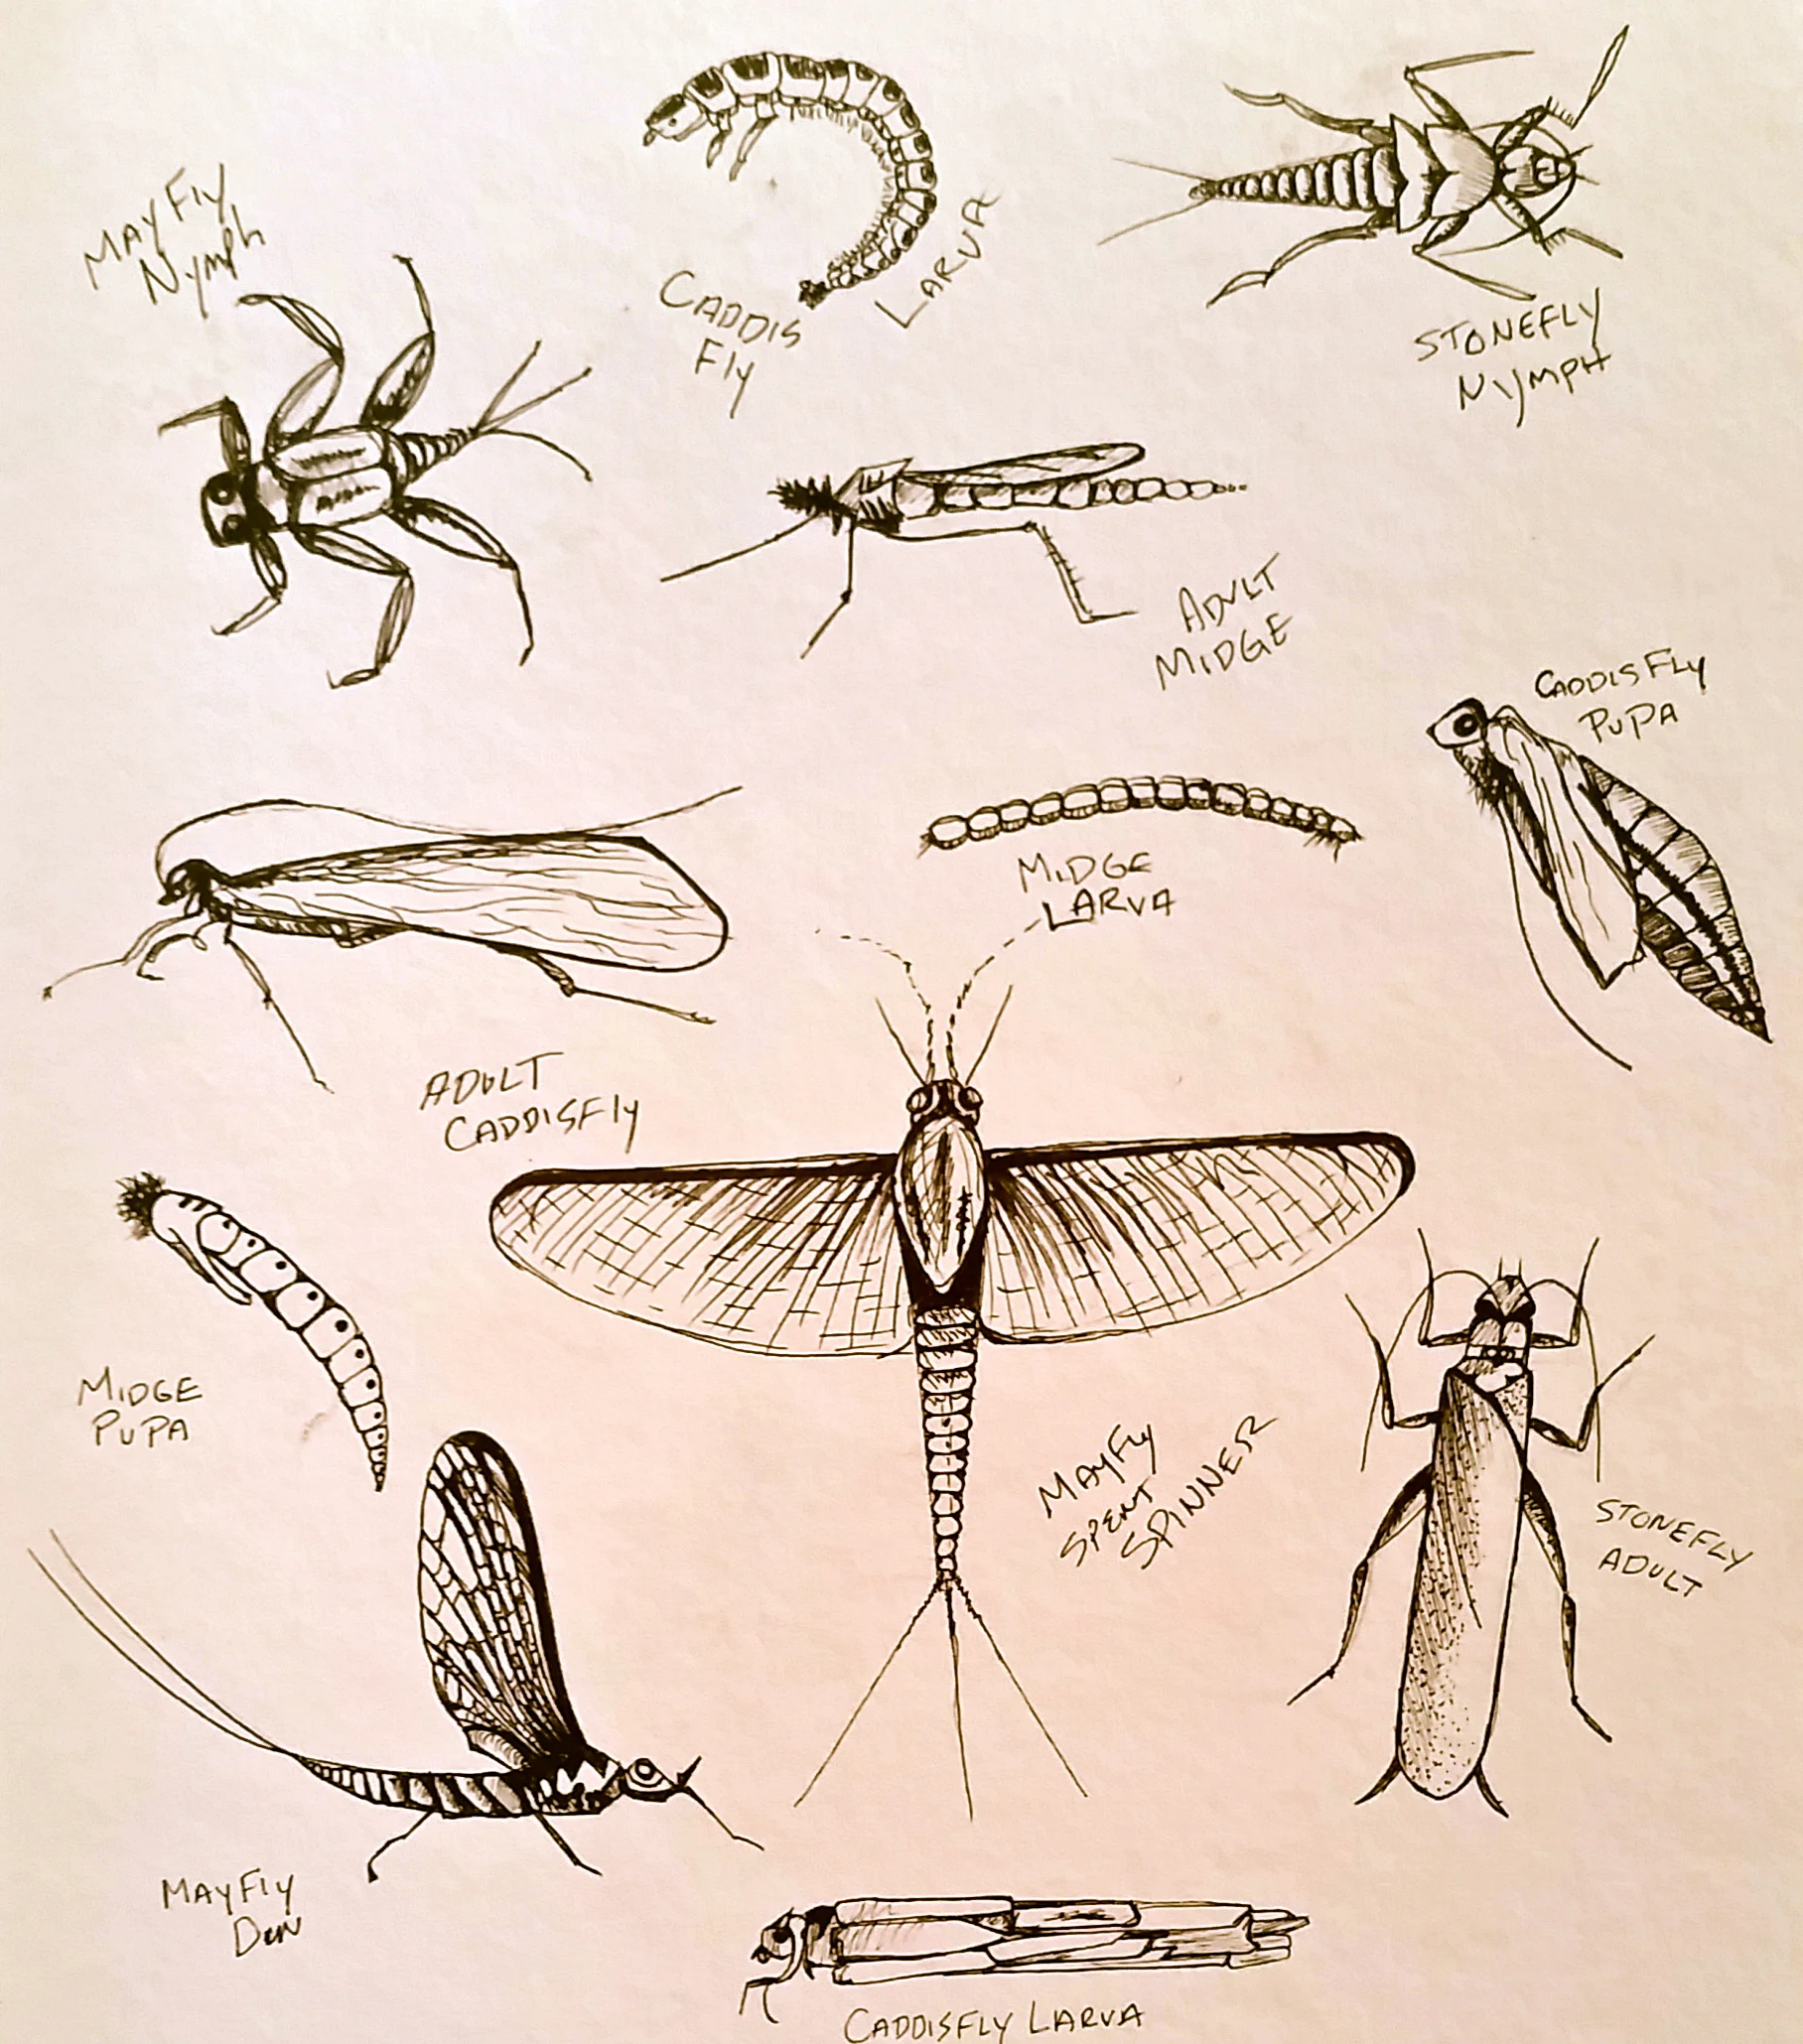 MAYFly
Nymph
CADDIS
Fly
LARVA
STONEFLY
NYMPH
ADULT
MIDGE
CADDISFLy
PUPA
MIDGE
LARVA
ADULT
CADDISFly
MIDGE
PUPA
MAYFly
SPENT
SPINNER
STONEFLY
ADULT
MAYFly
Dun
CADDISFLY LARVA